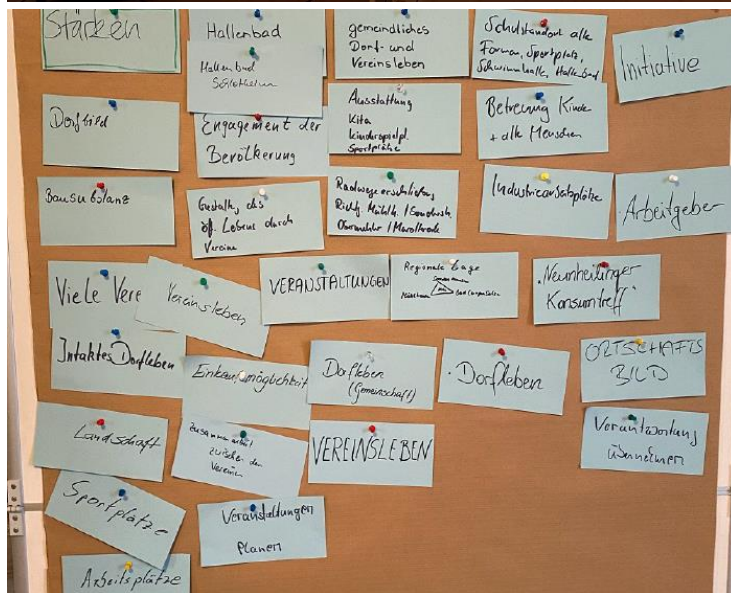 Stärken
Hallenbad
Hallenbad
Schlotheim
gemeindliches
Dorf- und
Vereinsleben
Schulstandort alle
Formen, Sportplatz,
Schwimmhalle, Hallenbad
Initiative
Dorfbild
Engagement der
Bevölkerung
Ausstattung
Kita
Kinderspielpl.
Sportplätze
Betreuung Kinder
+ alte Menschen
Bausubstanz
Gestaltg des
öff. Lebens durch
Vereine
Radwegeerschließung
Richtg. Mühlh. /
Obermehler /
Industrieansatzplätze
Arbeitgeber
Viele Vere
Vereinsleben
VERANSTALTUNGEN
Regionale Lage
Bad Langensalza
"Neunheilinger
Konsumtreff"
Intaktes Dorfleben
Einkaufsmöglichkeit
Dorfleben
(Gemeinschaft)
· Dorfleben
ORTSCHAFTS
BILD
Landschaft
Zusammenarbeit
zwischen den
Vereinen
VEREINSLEBEN
Verantwortung
übernehmen
Sportplätze
Veranstaltungen
planen
Arbeitsplätze